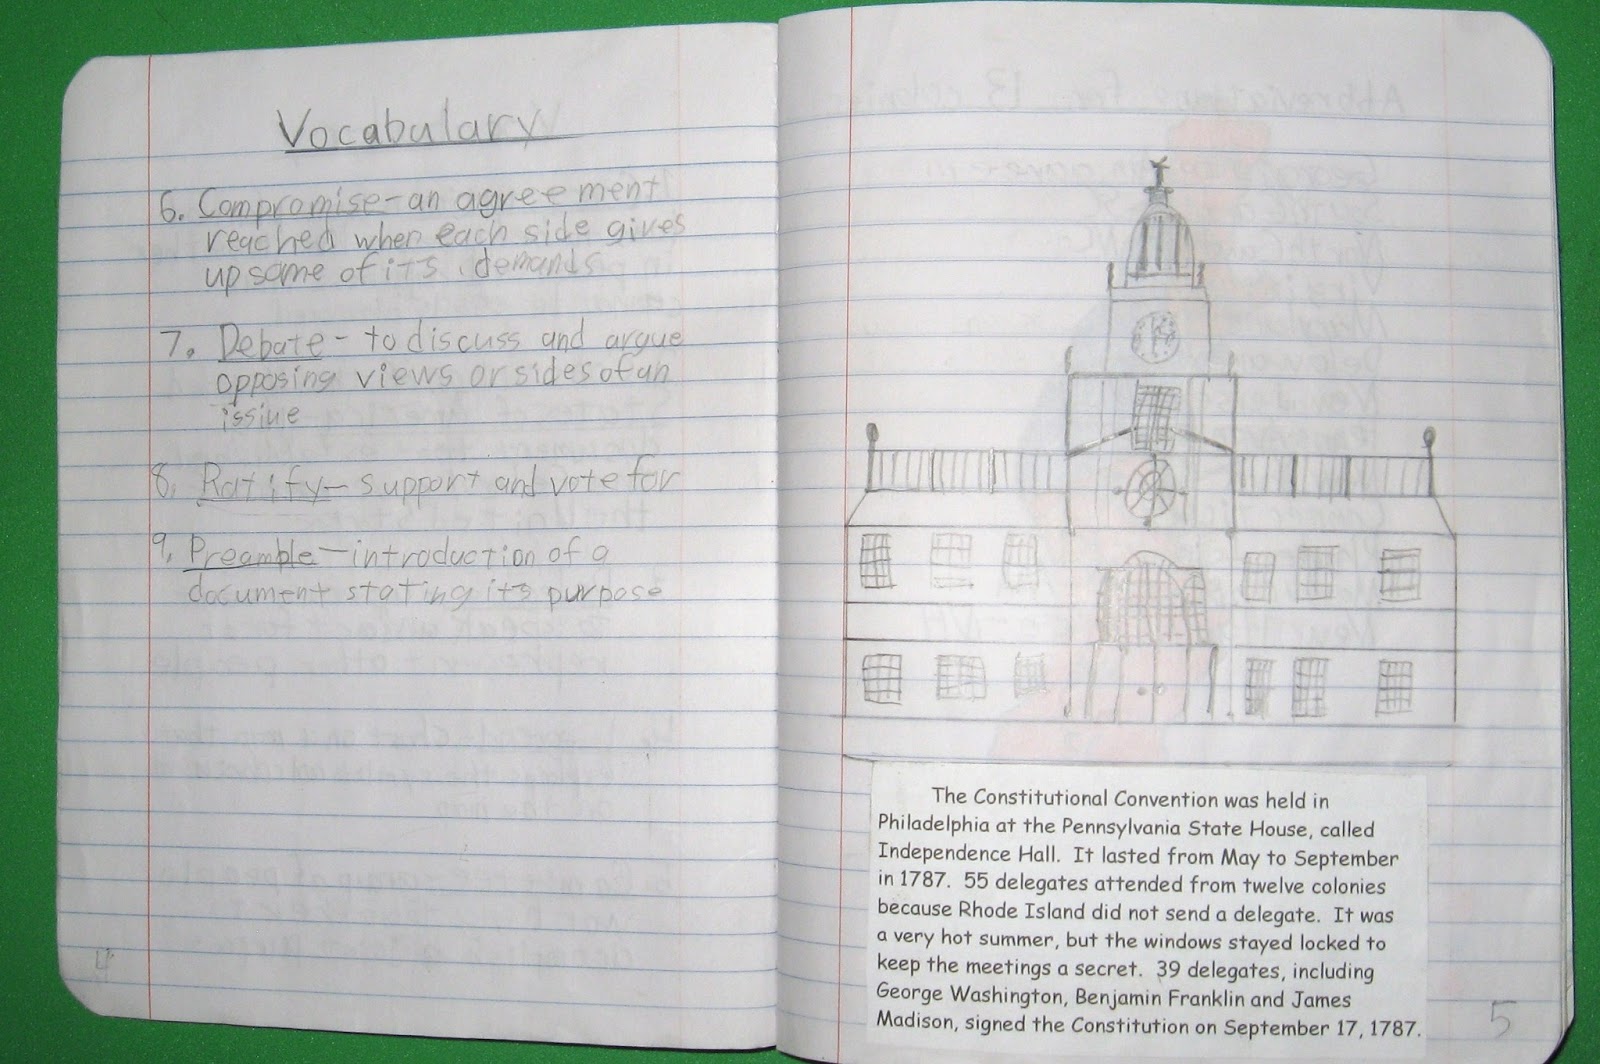 Vocabulary
6. Compromise - an agreement
reached when each side gives
up some of its demands
7. Debate - to discuss and argue
opposing views or sides of an
issiue
8. Ratify - support and vote for
9. Preamble - introduction of a
document stating its purpose
4
The Constitutional Convention was held in
Philadelphia at the Pennsylvania State House, called
Independence Hall. It lasted from May to September
in 1787. 55 delegates attended from twelve colonies
because Rhode Island did not send a delegate. It was
a very hot summer, but the windows stayed locked to
keep the meetings a secret. 39 delegates, including
George Washington, Benjamin Franklin and James
Madison, signed the Constitution on September 17, 1787.
5